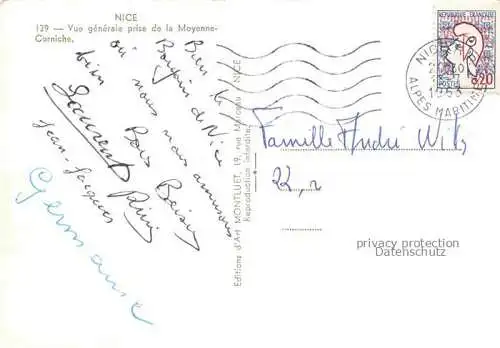 NICE
139 — Vue générale prise de la Moyenne-
Corniche.
Bien le
Bonjour de Nice
où nous nous amusons
bien Bons Baisers
Laurent
Jean-Jacques
Germaine
Editions d'Art MONTLUET, 19, rue NICE
Reproduction interdite
REPUBLIQUE FRANÇAISE
0,20
POSTES
NICE
ALPES MARITIMES
Famille André
privacy protection
Datenschutz